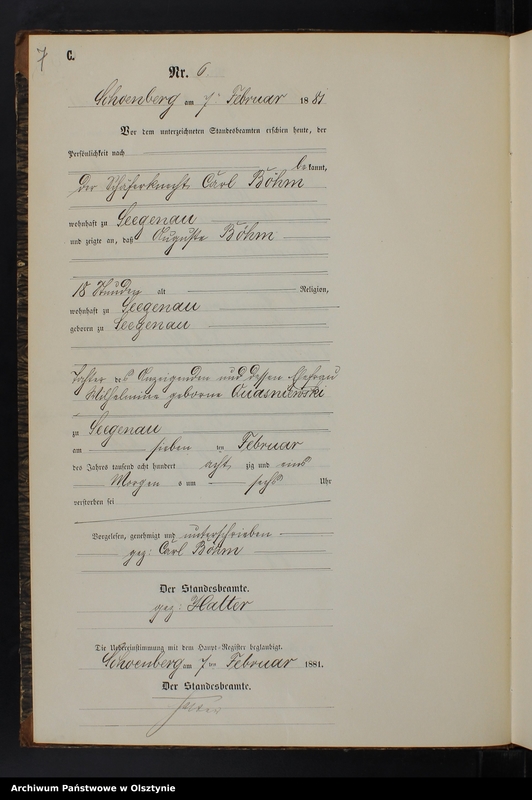 7
C.
Nr. 6
Schoenberg am 7. Februar 1881
Vor dem unterzeichneten Standesbeamten erschien heute, der
Persönlichkeit nach
be kannt,
der Schäferknecht Carl Böhm
wohnhaft zu Seegenau
und zeigte an, daß Auguste Böhm
18 Stunden alt Religion,
wohnhaft zu Seegenau
geboren zu Seegenau
Tochter des Anzeigenden und dessen Ehefrau
Wilhelmine geborne Quasniewski
zu Seegenau
am sieben ten Februar
des Jahres tausend acht hundert acht zig und eins
Morgen s um sechs Uhr
verstorben sei
Vorgelesen, genehmigt und unterschrieben
gez: Carl Böhm
Der Standesbeamte.
gez: Hatter
Die Uebereinstimmung mit dem Haupt-Register beglaubigt.
Schoenberg am 7 ten Februar 1881.
Der Standesbeamte.
Archiwum Państwowe w Olsztynie